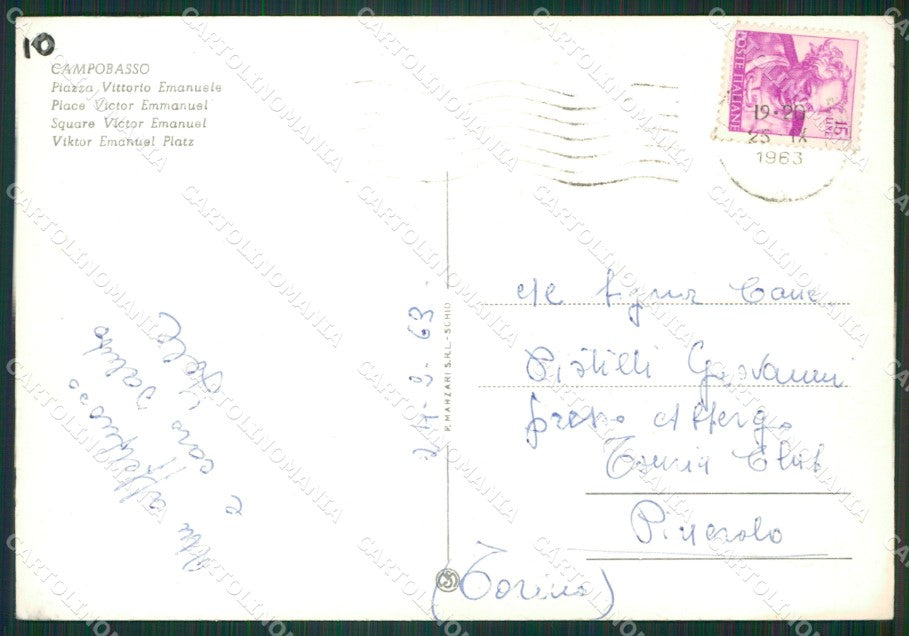 10
CAMPOBASSO
Piazza Vittorio Emanuele
Place Victor Emmanuel
Square Victor Emanuel
Viktor Emanuel Platz
POSTE ITALIANE
15 LIRE
19-20
25 IX
1963
Al Signor
Pistilli Giovanni
presso Alberg.
Pinerolo
(Torino)
P. MARZARI S.R.L. - SCHIO
24-9-63.
affettuoso
e caro saluto
CARTOLINOMANIA